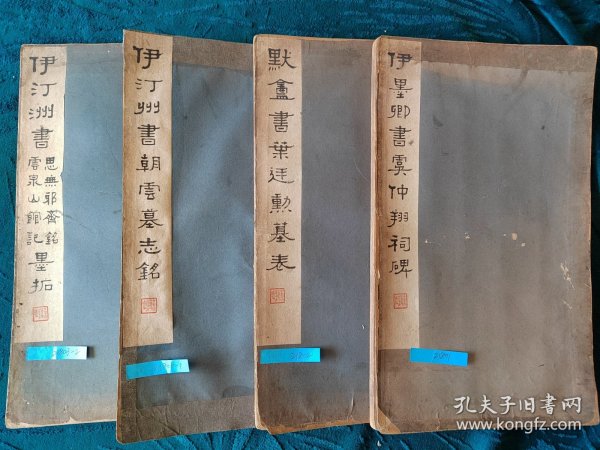 伊汀洲書
思無邪齋銘
雲泉山館記
墨拓
伊汀州書朝雲墓志銘
默盦書葉廷勲墓表
伊墨卿書虞仲翔祠碑
孔夫子旧书网
kongfz.com